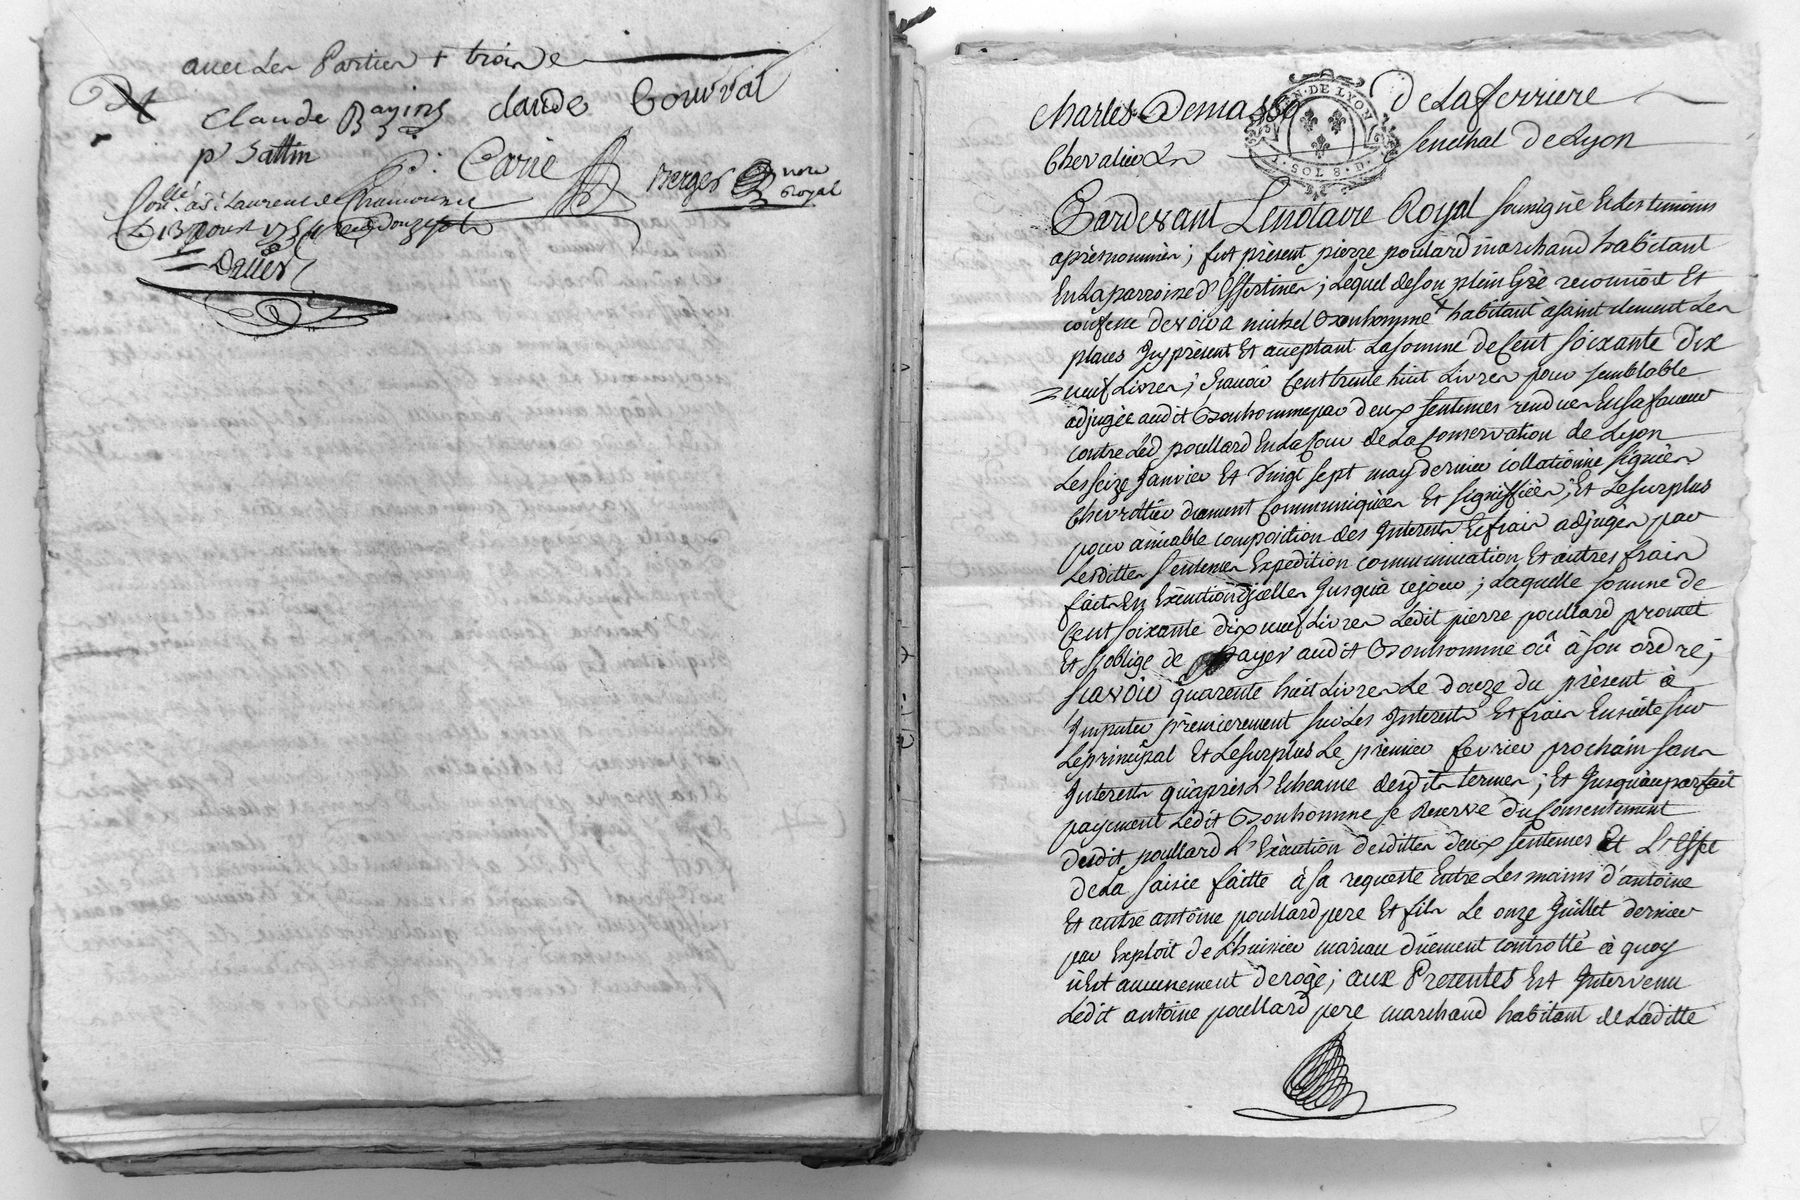 avec les Parties + trois
Claude Bayiny claude Courval
p' sattin
Carre
Berger nore Royal
Con.llé à s.t Laurent de Chamousset
Le 13 aoust 1754 Reçu Douze sols
Charles Demasso De La fferriere
Chevalier senechal De Lyon
GEN. DE LYON
1. SOL 8. D.
Pardevant Le notaire Royal soussigné et les temoins
aprèsnommés ; fut présent pierre poulard marchand habitant
En La parroisse d'Essertines ; Lequel de son plein Gré reconnoit Et
confesse devoir a michel Bonhomme + habitant à saint clement Les
places Icy présent Et acceptant La somme de Cent soixante Dix
neuf Livres ; scavoir Cent trente huit Livres pour semblable
adjugée audit Bonhomme par deux sentences rendues En sa faveur
contre Led poullard En La Cour de La Conservation de Lyon
Les seize Janvier Et vingt sept may dernier collationné signées
Chevrottier duement Communiquées Et signiffiées ; Et Le surplus
pour amiable composition des Interests Et frais adjugés par
Lesdittes sentences Expedition communication Et autres frais
faits En Exécution d'jcelles Jusqu'à cejour ; Laquelle somme de
Cent soixante dix neuf Livres Ledit pierre poullard promet
Et s'oblige de Payer audit Bonhomme où à son ordre ;
scavoir quarente huit Livres Le douze du présent à
Imputer prèmierement sur Les Interests Et frais Ensuite sur
Le principal Et Le surplus Le prèmier fevrier prochain sans
Interests qu'après L'Echeance desdits termes ; Et Jusqu'au parfait
payement Ledit Bonhomme se Reserve du Consentement
dudit poullard L'Exécution desdittes deux sentences Et L'Effet
de La saisie faitte à sa requeste Entre Les mains d'antoine
Et autre antoine poullard pere Et fils Le onze Juillet dernier
par Exploit de L'huissier mariau dûement controllé à quoy
n'Est aucunement derogé ; aux Presentes Est Intervenu
Ledit antoine poullard pere marchand habitant de Laditte